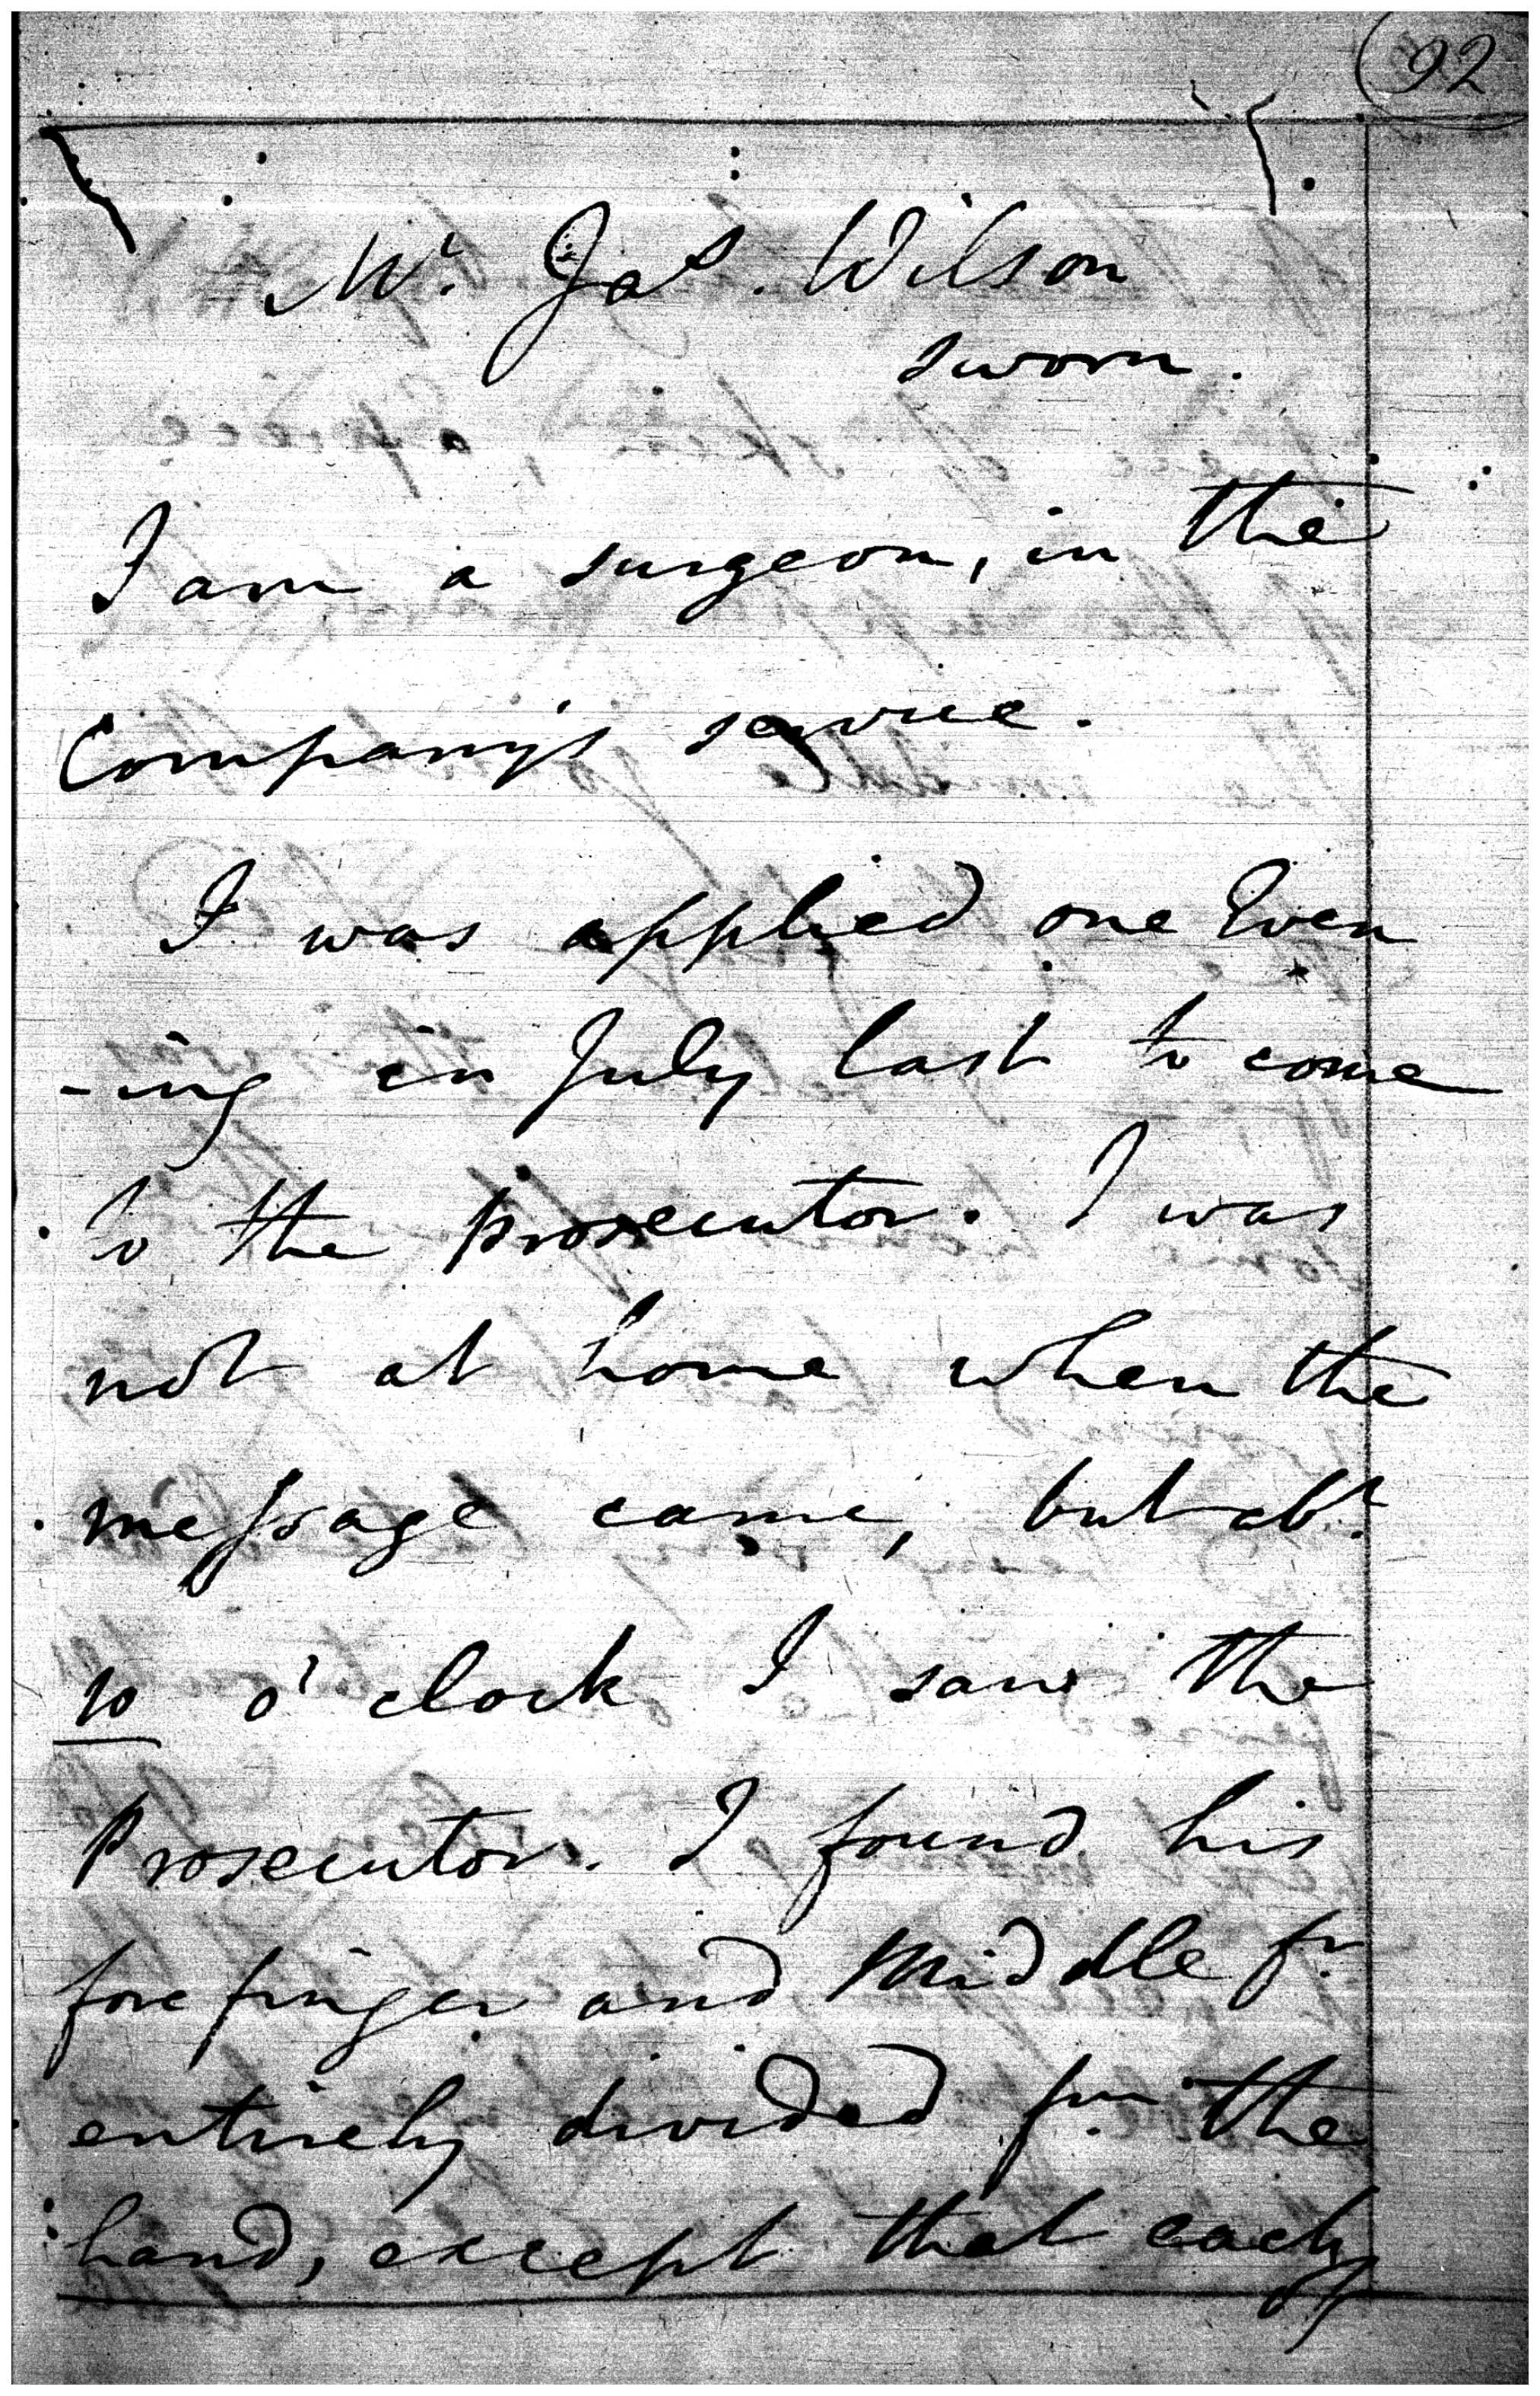 92
Mr. Jas. Wilson
sworn.
I am a surgeon, in the
Company's service.
I was applied one Even
-ing in July last to come
to the prosecutor. I was
not at home when the
message came, but abt.
10 o'clock I saw the
Prosecutor. I found his
fore finger and Middle fr.
entirely divided fm. the
hand, except that each
of